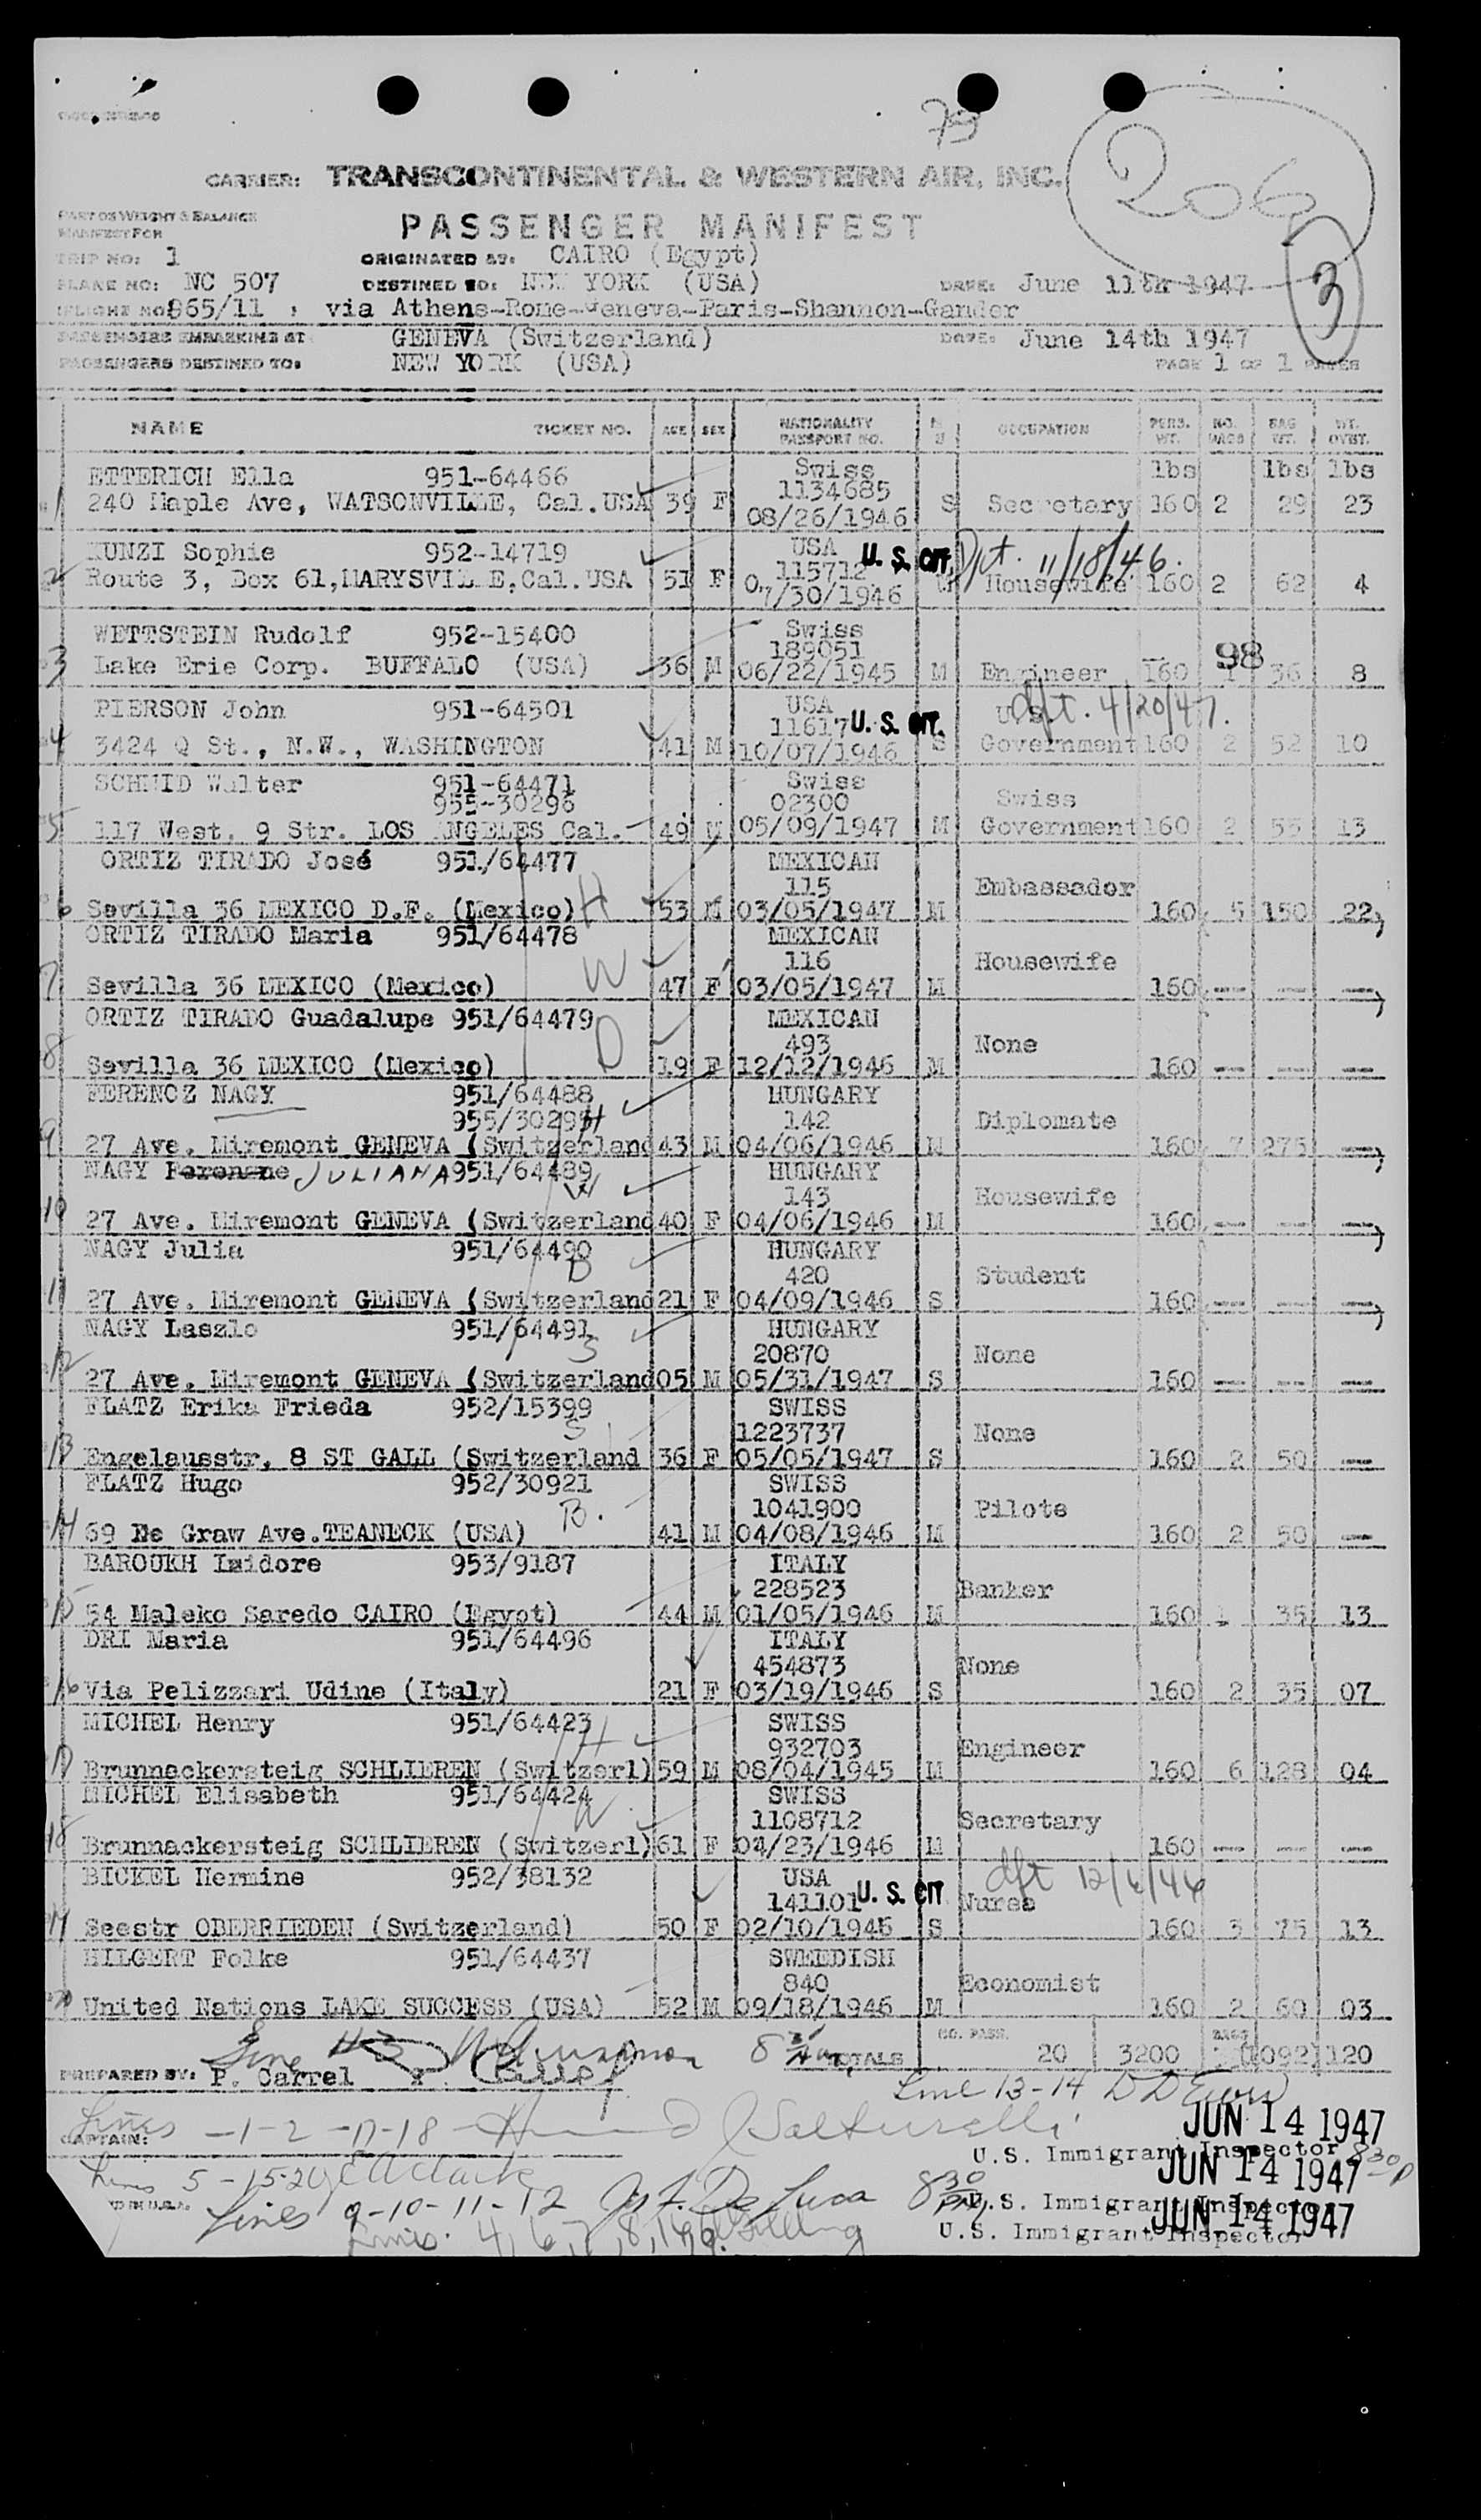 75
206
3
CARRIER: TRANSCONTINENTAL & WESTERN AIR, INC.
PART OF WEIGHT & BALANCE
MANIFEST FOR
PASSENGER MANIFEST
TRIP NO: 1 ORIGINATED AT: CAIRO (Egypt)
PLANE NO: NC 507 DESTINED TO: NEW YORK (USA) DATE: June 11th 1947
FLIGHT NO: 965/11 , via Athens-Rome-Geneva-Paris-Shannon-Gander
PASSENGERS EMBARKING AT GENEVA (Switzerland) DATE: June 14th 1947
PASSENGERS DESTINED TO: NEW YORK (USA) PAGE 1 OF 1 PAGES
NAME TICKET NO. AGE SEX NATIONALITY PASSPORT NO. OCCUPATION PERS. WT. NO. BAGS BAG WT. WT. OVBT.
ETTERICH Ella 951-64466 Swiss lbs lbs lbs
1134685
1 240 Maple Ave, WATSONVILLE, Cal.USA 39 F 08/26/1946 S Secretary 160 2 29 23
KUNZI Sophie 952-14719 USA U. S. CIT. Dft. 11/18/46.
115712
2 Route 3, Box 61,MARYSVILLE,Cal.USA 51 F 07/30/1946 W Housewife 160 2 62 4
WETTSTEIN Rudolf 952-15400 Swiss
189051 98
3 Lake Erie Corp. BUFFALO (USA) 36 M 06/22/1945 M Engineer 160 1 36 8
PIERSON John 951-64501 USA U.S. dft. 4/20/47.
11617 U. S. CIT.
4 3424 Q St., N.W., WASHINGTON 41 M 10/07/1946 S Government 160 2 52 10
SCHMID Walter 951-64471 Swiss
955-30296 02300 Swiss
5 117 West. 9 Str. LOS ANGELES Cal. 49 M 05/09/1947 M Government 160 2 55 13
ORTIZ TIRADO José 951/64477 MEXICAN
115 Embassador
6 Sevilla 36 MEXICO D.F. (Mexico) H 53 M 03/05/1947 M 160 5 150 22
ORTIZ TIRADO Maria 951/64478 MEXICAN
W 116 Housewife
7 Sevilla 36 MEXICO (Mexico) 47 F 03/05/1947 M 160 -- -- --
ORTIZ TIRADO Guadalupe 951/64479 MEXICAN
D 493 None
8 Sevilla 36 MEXICO (Mexico) 19 F 12/12/1946 M 160 -- -- --
FERENCZ NAGY 951/64488 HUNGARY
955/30295 H 142 Diplomate
9 27 Ave. Miremont GENEVA (Switzerland 43 M 04/06/1946 M 160 7 275 --
NAGY Ferencne JULIANA 951/64489 HUNGARY
W 143 Housewife
10 27 Ave. Miremont GENEVA (Switzerland 40 F 04/06/1946 M 160 -- -- --
NAGY Julia 951/64490 HUNGARY
D 420 Student
11 27 Ave. Miremont GENEVA (Switzerland 21 F 04/09/1946 S 160 -- -- --
NAGY Laszlo 951/64491 HUNGARY
S 20870 None
12 27 Ave. Miremont GENEVA (Switzerland 05 M 05/31/1947 S 160 -- -- --
FLATZ Erika Frieda 952/15399 SWISS
S 1223737 None
13 Engelausstr, 8 ST GALL (Switzerland 36 F 05/05/1947 S 160 2 50 --
FLATZ Hugo 952/30921 SWISS
B. 1041900 Pilote
14 69 De Graw Ave.TEANECK (USA) 41 M 04/08/1946 M 160 2 50 --
BAROUKH Isidore 953/9187 ITALY
228523 Banker
15 54 Maleko Saredo CAIRO (Egypt) 44 M 01/05/1946 M 160 1 35 13
DRI Maria 951/64496 ITALY
454873 None
16 Via Pelizzari Udine (Italy) 21 F 03/19/1946 S 160 2 35 07
MICHEL Henry 951/64423 SWISS
H 932703 Engineer
17 Brunnackersteig SCHLIEREN (Switzerl) 59 M 08/04/1945 M 160 6 128 04
MICHEL Elisabeth 951/64424 SWISS
W 1108712 Secretary
18 Brunnackersteig SCHLIEREN (Switzerl) 61 F 04/23/1946 M 160 -- -- --
BICKEL Hermine 952/38132 USA dft 12/6/46
141101 U. S. CIT Nurse
19 Seestr OBERRIEDEN (Switzerland) 50 F 02/10/1946 S 160 3 75 13
HILGERT Folke 951/64437 SWEEDISH
840 Economist
20 United Nations LAKE SUCCESS (USA) 52 M 09/18/1946 M 160 2 60 03
Line #3 8 30 TOTALS NO. PASS. 20 3200 BAGS 1092 120
PREPARED BY: P. Carrel
Line 13-14
Lines -1-2-17-18
CAPTAIN:
JUN 14 1947
U.S. Immigrant Inspector 830 P
Lines 5-15-20 Clarke
JUN 14 1947
Lines 9-10-11-12 De Luca 8 30 PM U.S. Immigrant Inspector
JUN 14 1947
Lines. 4, 6, 7, 8, 16, 19.
U.S. Immigrant Inspector